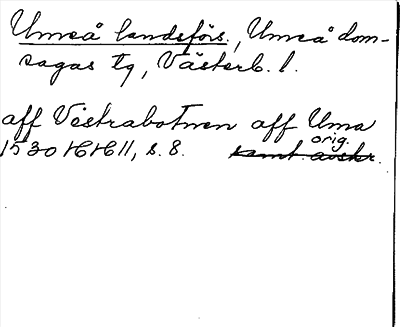 Umeå landsförs., Umeå dom-
sagas tg, Västerb. l.
aff Vestrabotnen aff Uma
orig.
1530 HH 11, s. 8. samt avskr.